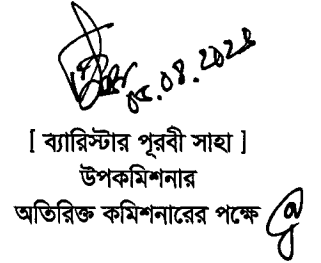 [ ব্যারিস্টার পূরবী সাহা ]
উপকমিশনার
অতিরিক্ত কমিশনারের পক্ষে